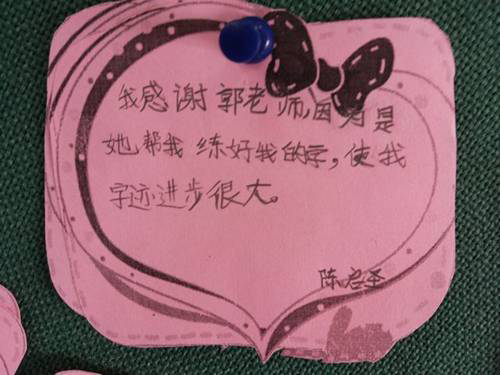 我感谢郭老师,因为是
她帮我练好我的字,使我
字迹进步很大。
陈启圣